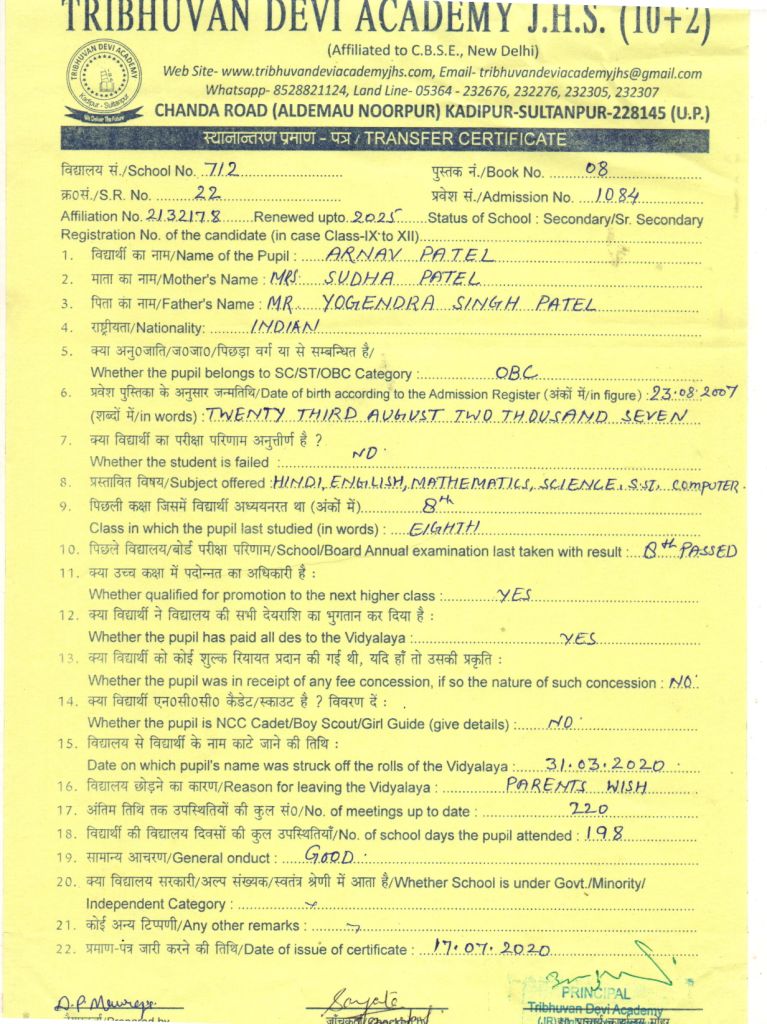 TRIBHUVAN DEVI ACADEMY J.H.S. (10+2)
(Affiliated to C.B.S.E., New Delhi)
TRIBHUVAN DEVI ACADEMY
Kadipur - Sultanpur
We Deliver The Future
Web Site- www.tribhuvandeviacademyjhs.com, Email- tribhuvandeviacademyjhs@gmail.com
Whatsapp- 8528821124, Land Line- 05364 - 232676, 232276, 232305, 232307
CHANDA ROAD (ALDEMAU NOORPUR) KADIPUR-SULTANPUR-228145 (U.P.)
स्थानान्तरण प्रमाण - पत्र / TRANSFER CERTIFICATE
विद्यालय सं./School No. 712 पुस्तक नं./Book No. 08
क्र०सं./S.R. No. 22 प्रवेश सं./Admission No. 1084
Affiliation No. 2132178 Renewed upto. 2025 Status of School : Secondary/Sr. Secondary
Registration No. of the candidate (in case Class-IX to XII)
1. विद्यार्थी का नाम/Name of the Pupil : ARNAV PATEL
2. माता का नाम/Mother's Name : MRS. SUDHA PATEL
3. पिता का नाम/Father's Name : MR YOGENDRA SINGH PATEL
4. राष्ट्रीयता/Nationality: INDIAN
5. क्या अनु०जाति/ज०जा०/पिछड़ा वर्ग या से सम्बन्धित है/
Whether the pupil belongs to SC/ST/OBC Category : OBC
6. प्रवेश पुस्तिका के अनुसार जन्मतिथि/Date of birth according to the Admission Register (अंकों में/in figure) : 23.08.2007
(शब्दों में/in words) : TWENTY THIRD AUGUST TWO THOUSAND SEVEN
7. क्या विद्यार्थी का परीक्षा परिणाम अनुत्तीर्ण है ?
Whether the student is failed : NO
8. प्रस्तावित विषय/Subject offered : HINDI, ENGLISH, MATHEMATICS, SCIENCE, S.ST, COMPUTER.
9. पिछली कक्षा जिसमें विद्यार्थी अध्ययनरत था (अंकों में) 8th
Class in which the pupil last studied (in words) : EIGHTH
10. पिछले विद्यालय/बोर्ड परीक्षा परिणाम/School/Board Annual examination last taken with result : 8th PASSED
11. क्या उच्च कक्षा में पदोन्नत का अधिकारी है :
Whether qualified for promotion to the next higher class : YES
12. क्या विद्यार्थी ने विद्यालय की सभी देयराशि का भुगतान कर दिया है :
Whether the pupil has paid all des to the Vidyalaya : YES
13. क्या विद्यार्थी को कोई शुल्क रियायत प्रदान की गई थी, यदि हाँ तो उसकी प्रकृति :
Whether the pupil was in receipt of any fee concession, if so the nature of such concession : NO
14. क्या विद्यार्थी एन०सी०सी० कैडेट/स्काउट है ? विवरण दें :
Whether the pupil is NCC Cadet/Boy Scout/Girl Guide (give details) : NO
15. विद्यालय से विद्यार्थी के नाम काटे जाने की तिथि :
Date on which pupil's name was struck off the rolls of the Vidyalaya : 31.03.2020
16. विद्यालय छोड़ने का कारण/Reason for leaving the Vidyalaya : PARENTS WISH
17. अंतिम तिथि तक उपस्थितियों की कुल सं०/No. of meetings up to date : 220
18. विद्यार्थी की विद्यालय दिवसों की कुल उपस्थितियाँ/No. of school days the pupil attended : 198
19. सामान्य आचरण/General onduct : GOOD
20. क्या विद्यालय सरकारी/अल्प संख्यक/स्वतंत्र श्रेणी में आता है/Whether School is under Govt./Minority/
Independent Category :
21. कोई अन्य टिप्पणी/Any other remarks :
22. प्रमाण-पत्र जारी करने की तिथि/Date of issue of certificate : 17.07.2020
PRINCIPAL
Tribhuvan Devi Academy